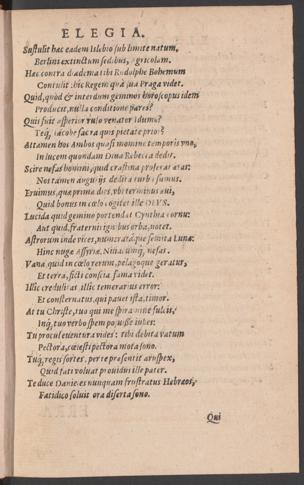 ELEGIA.
Sustulit hac eadem Islebio sub limite natum,
Berlini extinctum sedibus, Agricolam.
Hac contra diadema tibi Rudolphe Bohemum
Contulit: hic Regem quà sua Praga videt.
Quid, quòd & interdum geminos horoscopus idem
Producit, nulla conditione pares?
Quis fuit asperior
Teq́, Iacobe sacra quis pietate prior?
Attamen hos ambos quasi momine temporis uno,
In lucem quondam Diua Rebecca dedit.
Scire nefas homini, quid crastina proferat ætas:
Nos tamen angurijs dedita turba sumus.
Eruimus, quæ prima dies, vbi terminus æui,
Quid bonus in cœlo cogitet ille DEVS.
Lucida quid gemino portendat Cynthia cornu:
Aut quid, fraternis ignibus orba, notet.
Astrorum inde vices, numerataq́ue semita Lunæ:
Hinc nugæ Assyriæ, Niliacumq́, nefas.
Vana, quid in cœlo rerum, pelagoque geratur,
Et terra, ficti conscia fama videt.
Illic credulitas, illic temerarius error:
Et consternatus, qui pauet ista, timor.
At tu Christe, tuo qui me spiramine fulcis,
Inq́, tuo verbo spem posuisse iubes:
Tu procul euentura vides: tibi debita vatum
Pectora, cœlesti pectora mota sono.
Tuq́, regis sortes, per te præsentit aruspex,
Quid fati voluat prouidus ille pater.
Te duce Daniel es nunquam frustratus Hebræos,
Fatidico soluit ora diserta sono.
Qui